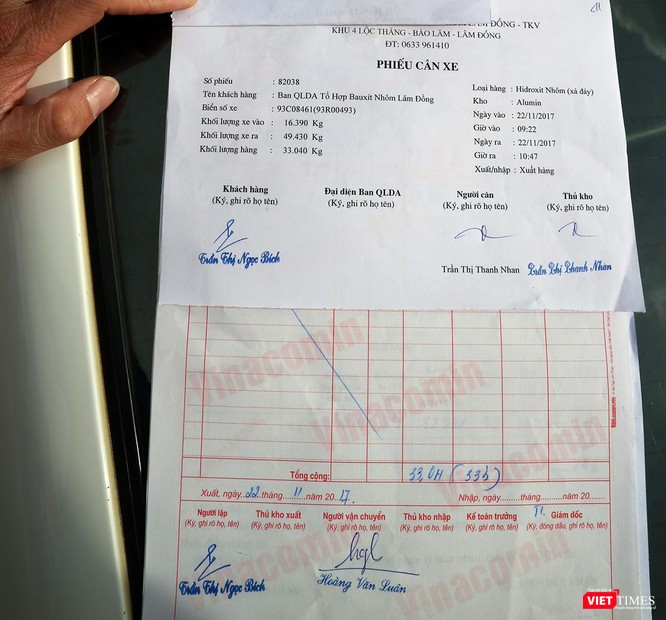 LÂM ĐỒNG - TKV
KHU 4 LỘC THẮNG - BẢO LÂM - LÂM ĐỒNG
ĐT: 0633 961410
PHIẾU CÂN XE
Số phiếu : 82038
Tên khách hàng : Ban QLDA Tổ Hợp Bauxít Nhôm Lâm Đồng
Biển số xe : 93C08461(93R00493)
Khối lượng xe vào : 16.390 Kg
Khối lượng xe ra : 49.430 Kg
Khối lượng hàng : 33.040 Kg
Loại hàng : Hidroxit Nhôm (xá đáy)
Kho : Alumin
Ngày vào : 22/11/2017
Giờ vào : 09:22
Ngày ra : 22/11/2017
Giờ ra : 10:47
Xuất/nhập : Xuất hàng
Khách hàng Đại diện Ban QLDA Người cân Thủ kho
(Ký, ghi rõ họ tên) (Ký, ghi rõ họ tên) (Ký, ghi rõ họ tên) (Ký, ghi rõ họ tên)
Trần Thị Ngọc Bích Trần Thị Thanh Nhan Trần Thị Thanh Nhan
Vinacomin
Vinacomin
Vinacomin
Tổng công: 33,04
Xuất, ngày 22 tháng 11 năm 20 17 Nhập, ngày........tháng............năm 20......
Người lập Thủ kho xuất Người vận chuyển Thủ kho nhập Kế toán trưởng Giám đốc
(Ký, ghi rõ họ, tên) (Ký, ghi rõ họ, tên) (Ký, ghi rõ họ, tên) (Ký, ghi rõ họ, tên) (Ký, ghi rõ họ, tên) (Ký, đóng dấu, ghi rõ họ, tên)
Vinacomin
hgl
Trần Thị Ngọc Bích Hoàng Văn Luân
VIETTIMES